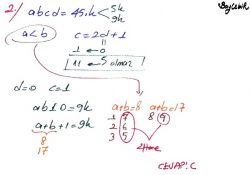 2.) abcd = 45.k < 5k
9k
a<b c = 2d+1
1 ← 0
11 ← 5 olmaz
d=0 c=1
ab10 = 9k a+b=8 a+b=17
a+b+1=9k 1 7 8 9
8 2 6
17 3 5
CEVAP: C